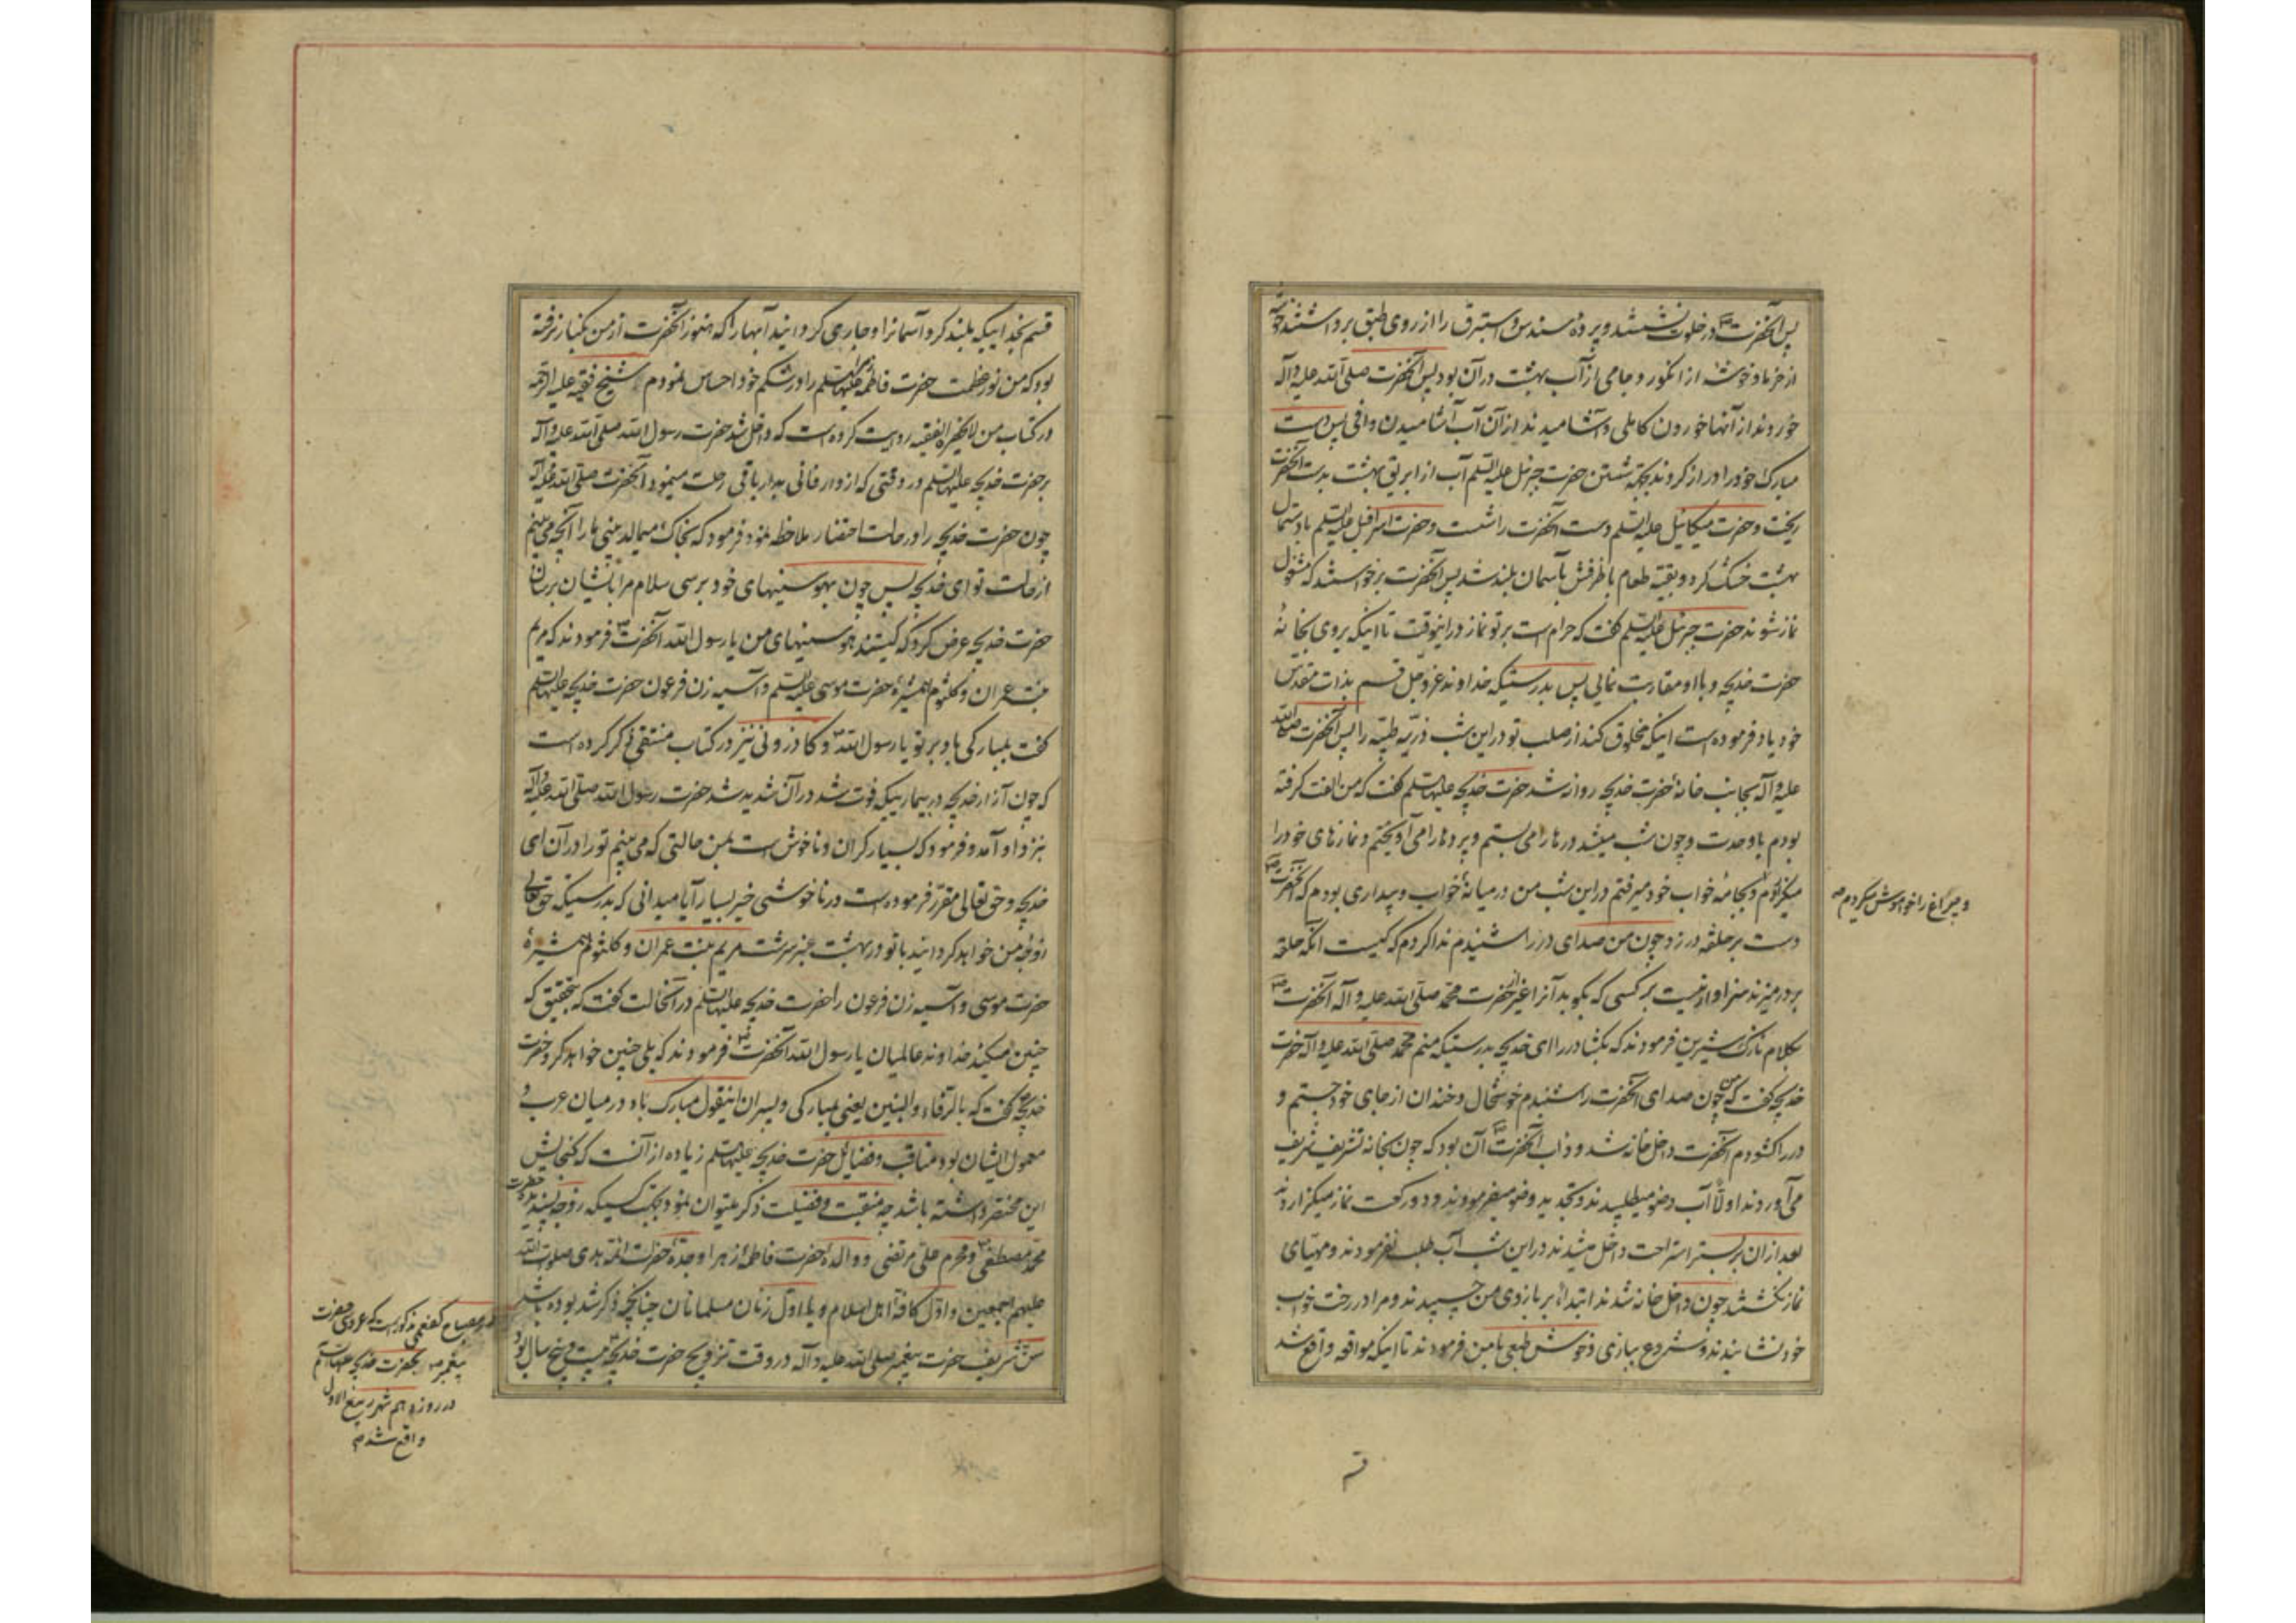 پس آنحضرت ص در خلوت نشستند و پردهٔ سندس و استبرق را از روی طبق برداشتند خوشه
از خرما و خوشهٔ از انگور و جامی از آب بهشت در آن بود پس آنحضرت صلی الله علیه و آله
خوردند از آنها خوردن کاملی و آشامیدند از آن آب آشامیدن وافی پس دست
مبارک خود را دراز کردند بجهة شستن حضرت جبرئیل علیه السلام آب از ابریق بهشت بدست آنحضرت
ریخت و حضرت میکائیل علیه السلام دست آنحضرت را شست و حضرت اسرافیل علیه السلام با دستمال
بهشت خشک کرد و بقیه طعام با ظرفش بآسمان بلند شد پس آنحضرت برخواستند که مشغول
نماز شوند حضرت جبرئیل علیه السلام گفت که حرام است بر تو نماز در اینوقت تا اینکه بروی بخانهٔ
حضرت خدیجه و با او مقاربت نمایی پس بدرستیکه خداوند عز و جل قسم بذات مقدس
خود یاد فرموده است اینکه مخلوق کند از صلب تو در این شب ذریه طیبه را پس آنحضرت صلی الله
علیه و آله بجانب خانهٔ حضرت خدیجه روانه شد حضرت خدیجه علیها السلام گفت که من الفت گرفته
بودم با وحدت و چون شب میشد درها را می بستم و پرده ها را می آویختم و نمازهای خود را
میگزاردم و بجامهٔ خواب خود میرفتم در این شب من در میانهٔ خواب و بیداری بودم که آنحضرت ص
و چراغ را خواموش میکردم صه
دست بر حلقه در زد چون من صدای در را شنیدم ندا کردم که کیست آنکه حلقه
بر در میزند سزاوار نیست بر کسی که بکوبد آنرا غیر از حضرت محمد صلی الله علیه و آله آنحضرت ص
بکلام نازک شیرین فرمودند که بگشا در را ای خدیجه بدرستیکه منم محمد صلی الله علیه و آله حضرت
خدیجه گفت که من چون صدای آنحضرت را شنیدم خوشحال و خندان از جای خود جستم و
در را گشودم آنحضرت داخل خانه شد و داب آنحضرت ص آن بود که چون بخانه تشریف شریف
می آوردند اولا آب وضو میطلبیدند و تجدید وضو میفرمودند و دو رکعت نماز میگزاردند
بعد از آن بر بستر استراحت داخل میشدند در این شب آب طلب نفرمودند و مهیای
نماز نگشتند چون داخل خانه شدند ابتداءً بر بازوی من چسپیدند و مرا در رخت خواب
خود نشانیدند و شروع ببازی و خوش طبعی با من فرمودند تا اینکه مواقعه واقع شد
قسم
قسم بخداییکه بلند کرد آسمانرا و جاری گردانید آبها را که هنوز آنحضرت از من کنار نرفته
بود که من نور عظمت حضرت فاطمه علیها السلام را در شکم خود احساس نمودم شیخ فقیه علیه الرحمه
در کتاب من لا یحضره الفقیه روایت کرده است که داخل شد حضرت رسول الله صلی الله علیه و آله
بر حضرت خدیجه علیها السلام در وقتی که از دار فانی بدار باقی رحلت مینمود آنحضرت صلی الله علیه و آله
چون حضرت خدیجه را در حالت احتضار ملاحظه نمود فرمود که بخاک میمالد بینی ما را آنچه می بینم
از حالت تو ای خدیجه پس چون بهوسنیهای خود برسی سلام مرا بایشان برسان
حضرت خدیجه عرض کرد که کیستند هوسنیهای من یا رسول الله آنحضرت ص فرمودند که مریم
بنت عمران و کلثوم همشیرهٔ حضرت موسی علیه السلام و آسیه زن فرعون حضرت خدیجه علیها السلام
گفت بمبارکی باد بر تو یا رسول الله و کازرونی نیز در کتاب منتقی ذکر کرده است
که چون آزار خدیجه در بیماریکه فوت شد در آن شدید شد حضرت رسول الله صلی الله علیه و آله
بنزد او آمد و فرمود که بسیار گران و ناخوش است بمن حالتی که می بینم تو را در آن ای
خدیجه و حق تعالی مقرر فرموده است در ناخوشی خیر بسیار آیا میدانی که بدرستیکه حق تعالی
زوجهٔ من خواهد گردانید با تو در بهشت عنبر سرشت مریم بنت عمران و کلثوم همشیرهٔ
حضرت موسی و آسیه زن فرعون را حضرت خدیجه علیها السلام در آنحالت گفت که بتحقیق که
چنین میکند خداوند عالمیان یا رسول الله آنحضرت ص فرمودند که بلی چنین خواهد کرد حضرت
خدیجه گفت که بالرفاء والبنین یعنی بمبارکی و پسران اینقول مبارک باد در میان عرب و
معمول ایشان بود مناقب و فضائل حضرت خدیجه علیها السلام زیاده از آنست که گنجایش
این مختصر داشته باشد چه منقبت و فضیلت ذکر میتوان نمود بجهت کسیکه زوجه پسندیده حضرت
محمد مصطفی ص و محرم علی مرتضی و والدهٔ حضرت فاطمهٔ زهرا و جدهٔ حضرت ائمه هدی صلوات الله
علیهم اجمعین و اول کافهٔ اهل اسلام و یا اول زنان مسلمانان چنانچه ذکر شد بوده باشد
سن شریف حضرت پیغمبر صلی الله علیه و آله در وقت تزویج حضرت خدیجه بیست و پنج سال بود
در مصباح کفعمی مذکور است که عروسی حضرت
پیغمبر ص بحضرت خدیجه علیها السلام
در روز دهم شهر ربیع الاول
واقع شد صه